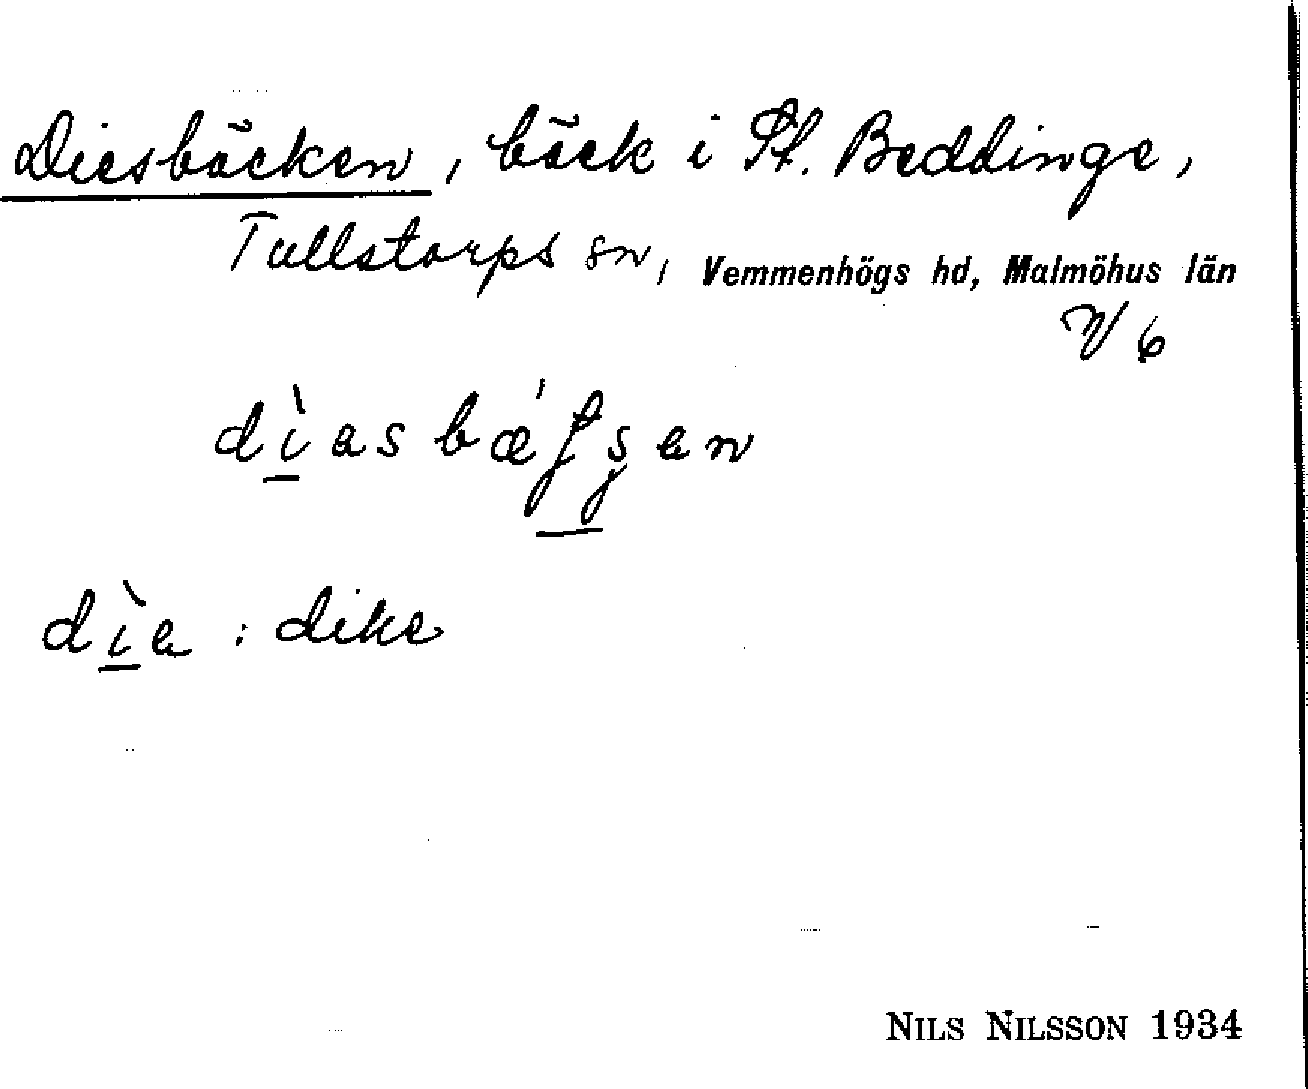 Diesbäcken, bäck i St. Beddinge,
Tullstorps sn, Vemmenhögs hd, Malmöhus län
dìas
dìa : dike
NILS NILSSON 1934